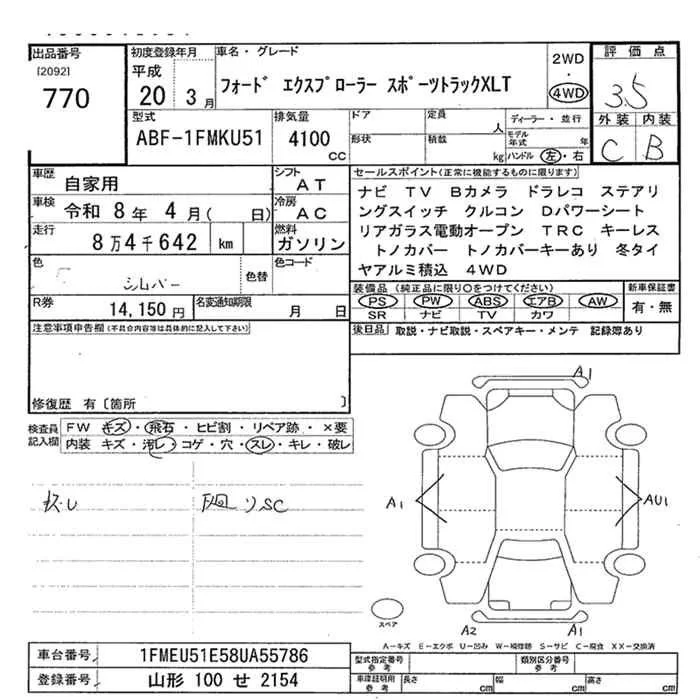 出品番号
[2092]
770
初度登録年月
平成
20 3月
車名・グレード
フォード エクスプローラー スポーツトラックXLT
2WD
・
4WD
評価点
3.5
外装 内装
C B
型式
ABF-1FMKU51
排気量
4100
cc
ドア
定員
人
形状
積載
kg
ディーラー・並行
モデル年式 年
ハンドル 左・右
車歴 自家用
シフト AT
車検 令和 8年 4月( 日)
冷房 AC
走行 8万4千642 km
燃料 ガソリン
色 シルバー
色替
色コード
R券 14,150円
名変通知期限 月 日
セールスポイント(正常に機能するものに限ります)
ナビ TV Bカメラ ドラレコ ステアリ
ングスイッチ クルコン Dパワーシート
リアガラス電動オープン TRC キーレス
トノカバー トノカバーキーあり 冬タイ
ヤアルミ積込 4WD
装備品 (純正品に限り○をつけてください)
PS PW ABS エアB AW
SR ナビ TV カワ
新車保証書
有・無
後日品 取説・ナビ取説・スペアキー・メンテ 記録簿あり
注意事項申告欄(不具合内容等は具体的に記入して下さい)
修復歴 有〔箇所 〕
検査員記入欄
FW キズ・飛石・ヒビ割・リペア跡・×要
内装 キズ・汚レ・コゲ・穴・スレ・キレ・破レ
A1
A1
AU1
A2
A1
スペア
A-キズ E-エクボ U-凹み W-補修跡 S-サビ C-腐食 XX-交換済
車台番号 1FMEU51E58UA55786
登録番号 山形 100 せ 2154
型式指定番号参考
類別区分番号参考
車庫証明用参考
長さ cm
幅 cm
高さ cm